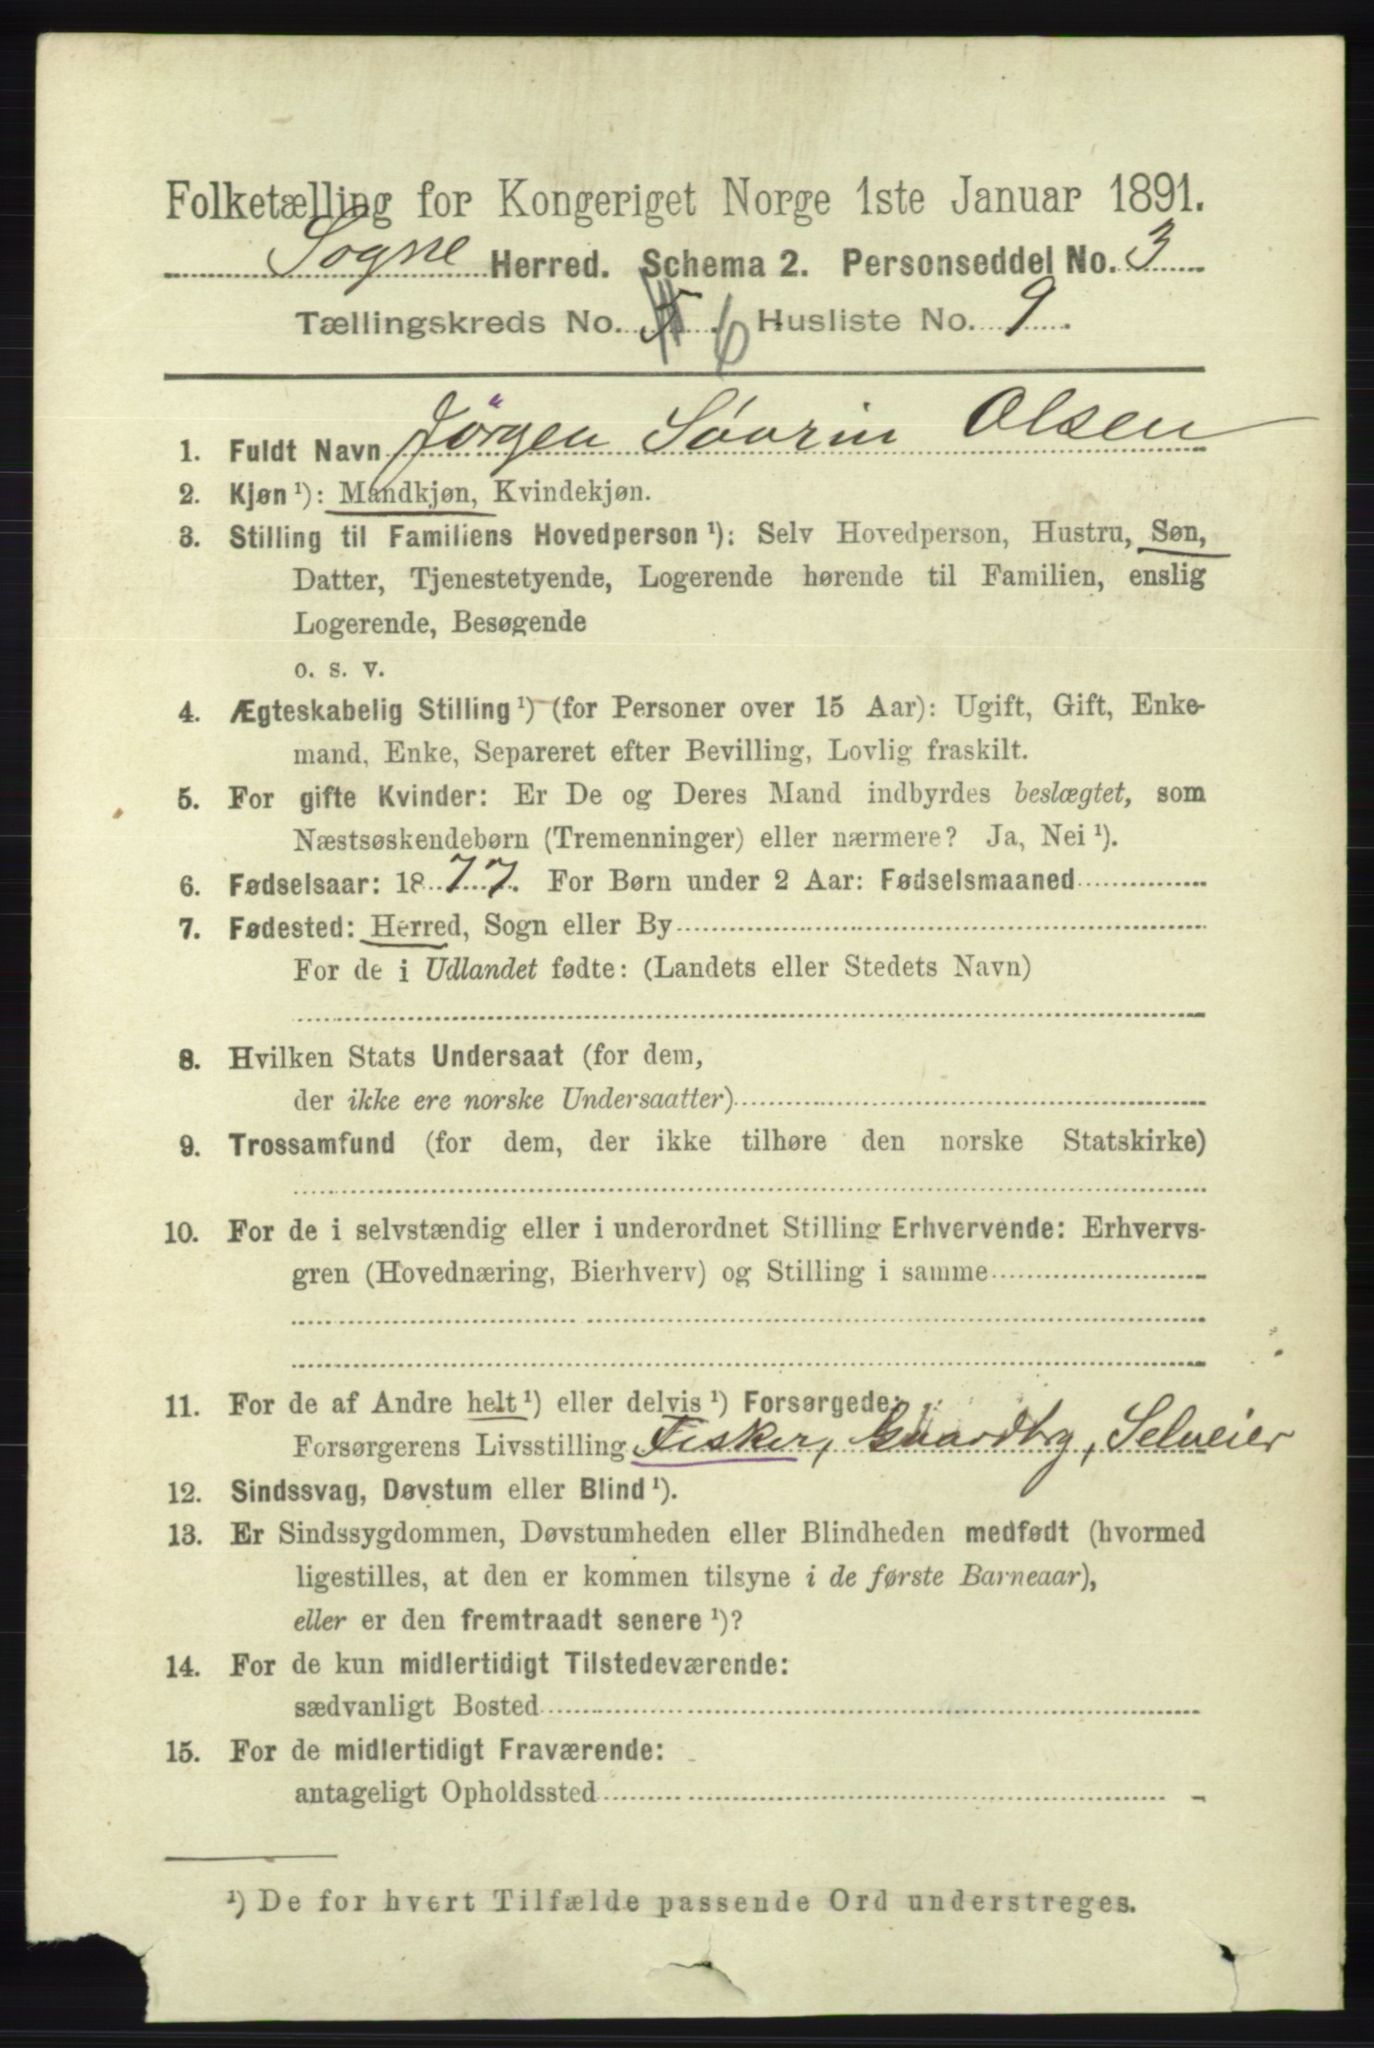 Folketælling for Kongeriget Norge 1ste Januar 1891.
Sogne Herred. Schema 2. Personseddel No. 3
Tællingskreds No. 6 Husliste No. 9.
1. Fuldt Navn Jörgen Sövrin Olsen
2. Kjøn ¹): Mandkjøn, Kvindekjøn.
3. Stilling til Familiens Hovedperson ¹): Selv Hovedperson, Hustru, Søn,
Datter, Tjenestetyende, Logerende hørende til Familien, enslig
Logerende, Besøgende
o. s. v.
4. Ægteskabelig Stilling ¹) (for Personer over 15 Aar): Ugift, Gift, Enke-
mand, Enke, Separeret efter Bevilling, Lovlig fraskilt.
5. For gifte Kvinder: Er De og Deres Mand indbyrdes beslægtet, som
Næstsøskendebørn (Tremenninger) eller nærmere? Ja, Nei ¹).
6. Fødselsaar: 1877. For Børn under 2 Aar: Fødselsmaaned
7. Fødested: Herred, Sogn eller By
For de i Udlandet fødte: (Landets eller Stedets Navn)
8. Hvilken Stats Undersaat (for dem,
der ikke ere norske Undersaatter)
9. Trossamfund (for dem, der ikke tilhøre den norske Statskirke)
10. For de i selvstændig eller i underordnet Stilling Erhvervende: Erhvervs-
gren (Hovednæring, Bierhverv) og Stilling i samme
11. For de af Andre helt ¹) eller delvis ¹) Forsørgede:
Forsørgerens Livsstilling Fisker, Gaardbr, Selveier
12. Sindssvag, Døvstum eller Blind ¹).
13. Er Sindssygdommen, Døvstumheden eller Blindheden medfødt (hvormed
ligestilles, at den er kommen tilsyne i de første Barneaar),
eller er den fremtraadt senere ¹)?
14. For de kun midlertidigt Tilstedeværende:
sædvanligt Bosted
15. For de midlertidigt Fraværende:
antageligt Opholdssted
¹) De for hvert Tilfælde passende Ord understreges.